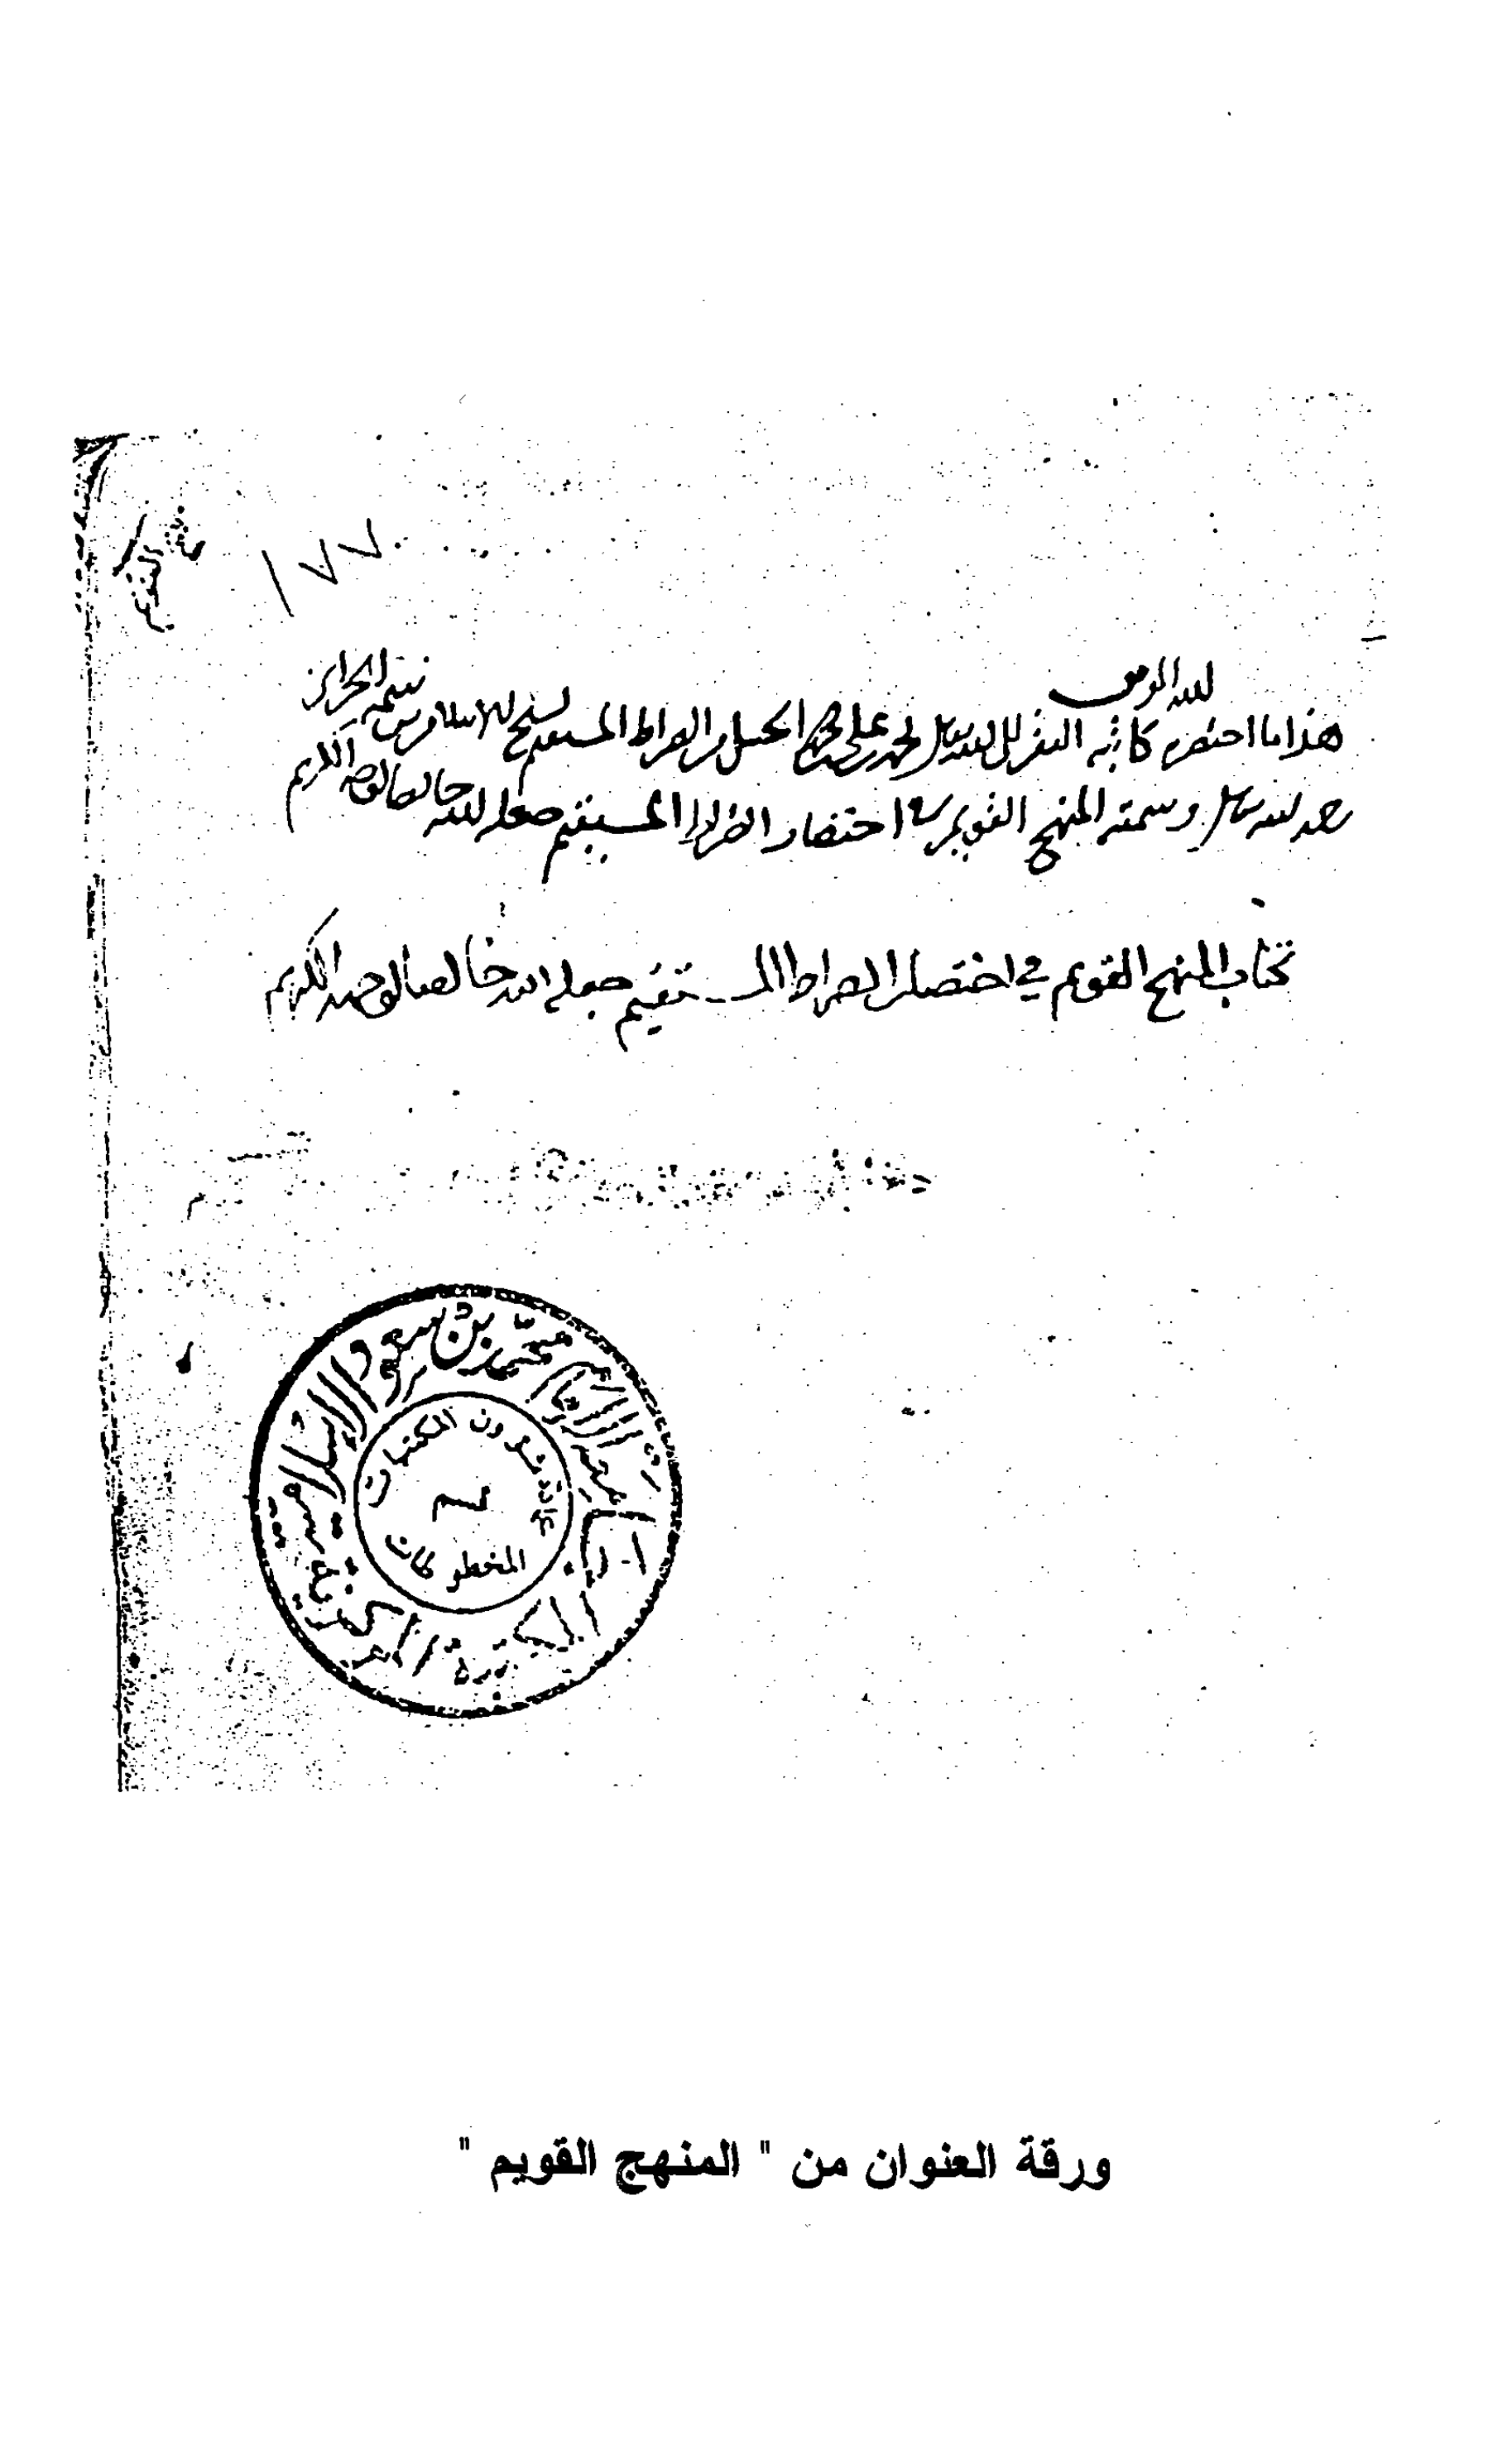 ١٧٧٠
لله الموفق
هذا ما اختصره كاتبه الفقير إلى الله تعالى محمد بن علي بن محمد الحنبلي من الصراط المستقيم لشيخ الإسلام بن تيمية الحراني
رحمه الله تعالى وسميته المنهج القويم في اختصار الصراط المستقيم جعله الله خالصا لوجهه الكريم
كتاب المنهج القويم في اختصار الصراط المستقيم جعله الله خالصا لوجهه الكريم
محمد بن سعود الإسلامية
عمادة شؤون المكتبات
قسم
المخطوطات
ورقة العنوان من " المنهج القويم "